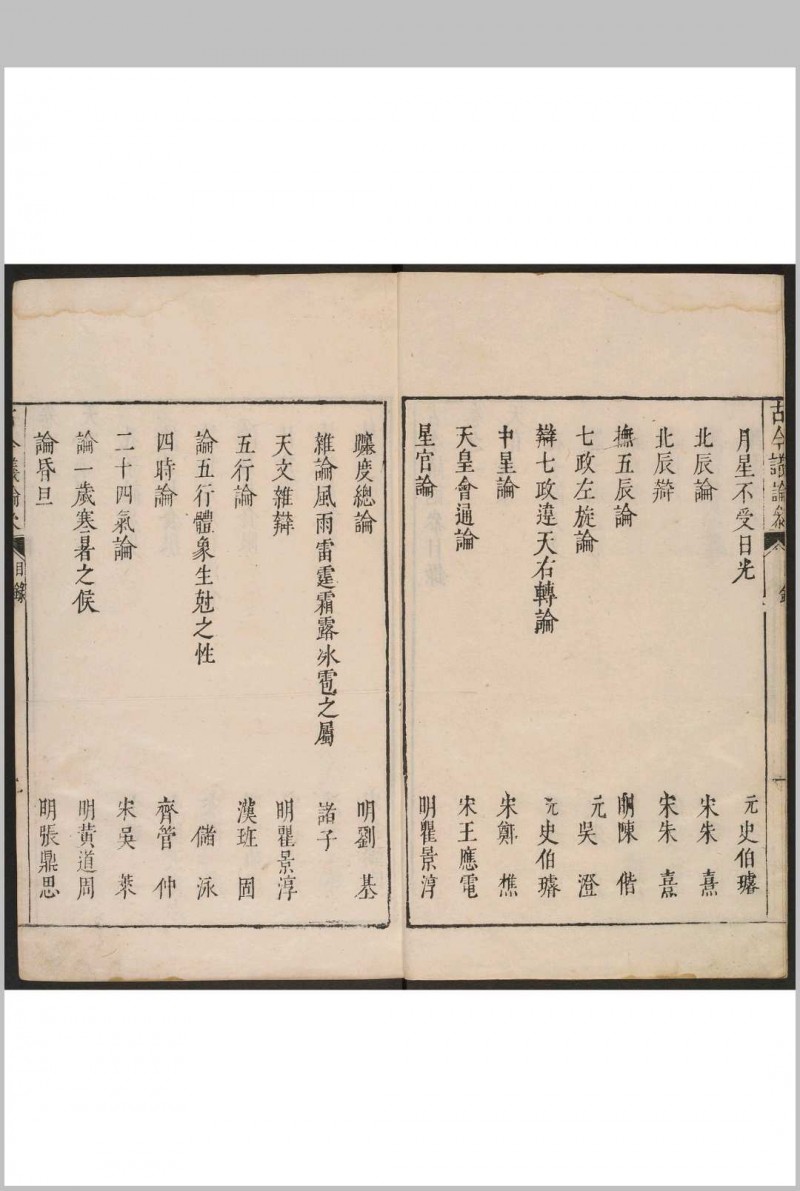 古今議論參
月星不受日光 元史伯璿
北辰論 宋朱熹
北辰辯 宋朱熹
撫五辰論 明陳偕
七政左旋論 元吳澄
辯七政違天右轉論 元史伯璿
中星論 宋鄭樵
天皇會通論 宋王應電
星官論 明瞿景淳
躔度總論 明劉基
雜論風雨雷霆霜露冰雹之屬 諸子
天文雜辯 明瞿景淳
五行論 漢班固
論五行體象生尅之性 儲泳
四時論 齊管仲
二十四氣論 宋吳萊
論一歲寒暑之候 明黃道周
論昏旦 明張鼎思
目錄